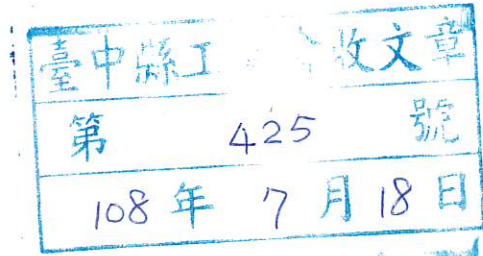 臺中縣工 會收文章
第 425 號
108年 7月18日